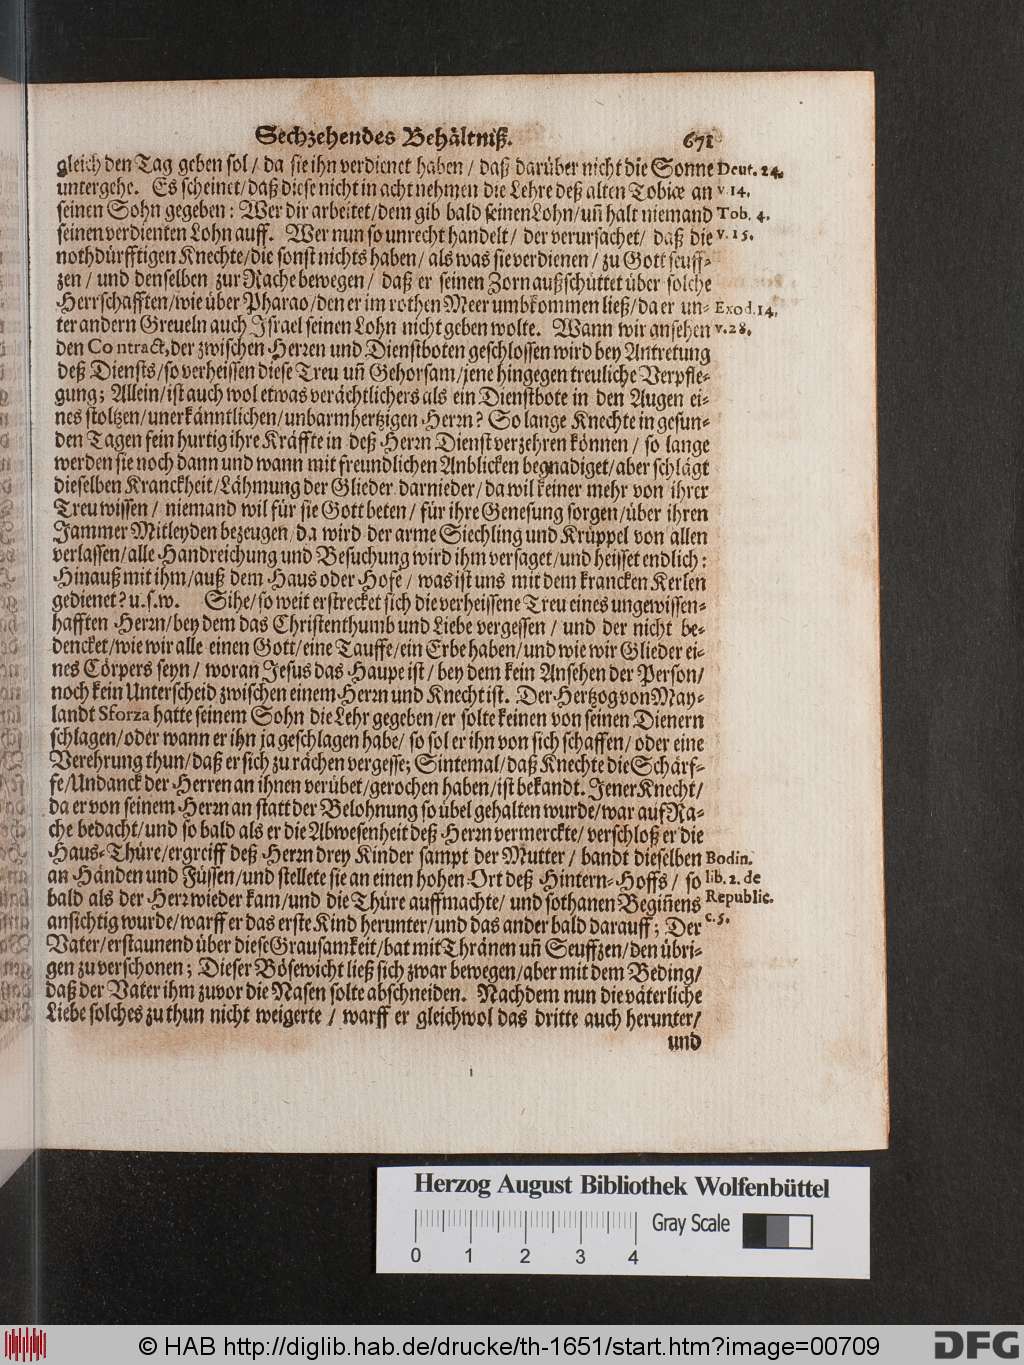 Sechzehendes Behältniß. 671
gleich den Tag geben sol / da sie ihn verdienet haben / daß darüber nicht die Sonne Deut. 24.
untergehe. Es scheinet / daß diese nicht in acht nehmen die Lehre deß alten Tobiæ an v. 14.
seinen Sohn gegeben: Wer dir arbeitet / dem gib bald seinen Lohn / uñ halt niemand Tob. 4.
seinen verdienten Lohn auff. Wer nun so unrecht handelt / der verursachet / daß die v. 15.
nothdürfftigen Knechte / die sonst nichts haben / als was sie verdienen / zu Gott seuff-
zen / und denselben zur Rache bewegen / daß er seinen Zorn außschüttet über solche
Herrschafften / wie über Pharao / den er im rothen Meer umbkommen ließ / da er un- Exod. 14.
ter andern Greueln auch Israel seinen Lohn nicht geben wolte. Wann wir ansehen v. 28.
den Contract, der zwischen Herren und Dienstboten geschlossen wird bey Antretung
deß Diensts / so verheissen diese Treu uñ Gehorsam / jene hingegen treuliche Verpfle-
gung; Allein / ist auch wol etwas verächtlichers als ein Dienstbote in den Augen ei-
nes stoltzen / unerkänntlichen / unbarmhertzigen Herrn? So lange Knechte in gesun-
den Tagen fein hurtig ihre Kräffte in deß Herrn Dienst verzehren können / so lange
werden sie noch dann und wann mit freundlichen Anblicken begnadiget / aber schlägt
dieselben Kranckheit / Lähmung der Glieder darnieder / da wil keiner mehr von ihrer
Treu wissen / niemand wil für sie Gott beten / für ihre Genesung sorgen / über ihren
Jammer Mitleyden bezeugen / da wird der arme Siechling und Krüppel von allen
verlassen / alle Handreichung und Besuchung wird ihm versaget / und heisset endlich:
Hinauß mit ihm / auß dem Haus oder Hofe / was ist uns mit dem krancken Kerlen
gedienet? u. s. w. Sihe / so weit erstrecket sich die verheissene Treu eines ungewissen-
hafften Herrn / bey dem das Christenthumb und Liebe vergessen / und der nicht be-
dencket / wie wir alle einen Gott / eine Tauffe / ein Erbe haben / und wie wir Glieder ei-
nes Cörpers seyn / woran Jesus das Haupt ist / bey dem kein Ansehen der Person /
noch kein Unterscheid zwischen einem Herrn und Knecht ist. Der Hertzog von May-
landt Sforza hatte seinem Sohn die Lehr gegeben / er solte keinen von seinen Dienern
schlagen / oder wann er ihn ja geschlagen habe / so sol er ihn von sich schaffen / oder eine
Verehrung thun / daß er sich zu rächen vergesse; Sintemal / daß Knechte die Schärf-
fe / Undanck der Herren an ihnen verübet / gerochen haben / ist bekandt. Jener Knecht /
da er von seinem Herrn an statt der Belohnung so übel gehalten wurde / war auf Ra-
che bedacht / und so bald als er die Abwesenheit deß Herrn vermerckte / verschloß er die
Haus-Thüre / ergreiff deß Herrn drey Kinder sampt der Mutter / bandt dieselben Bodin.
an Händen und Füssen / und stellete sie an einen hohen Ort deß Hintern-Hoffs / so lib. 2. de
bald als der Herr wieder kam / und die Thüre auffmachte / und sothanen Begiñens Republic.
ansichtig wurde / warff er das erste Kind herunter / und das ander bald darauff; Der c. 5.
Vater / erstaunend über diese Grausamkeit / bat mit Thränen uñ Seuffzen / den übri-
gen zu verschonen; Dieser Bösewicht ließ sich zwar bewegen / aber mit dem Beding /
daß der Vater ihm zuvor die Nasen solte abschneiden. Nachdem nun die väterliche
Liebe solches zu thun nicht weigerte / warff er gleichwol das dritte auch herunter /
und
Herzog August Bibliothek Wolfenbüttel
Gray Scale
0 1 2 3 4
© HAB http://diglib.hab.de/drucke/th-1651/start.htm?image=00709
DFG